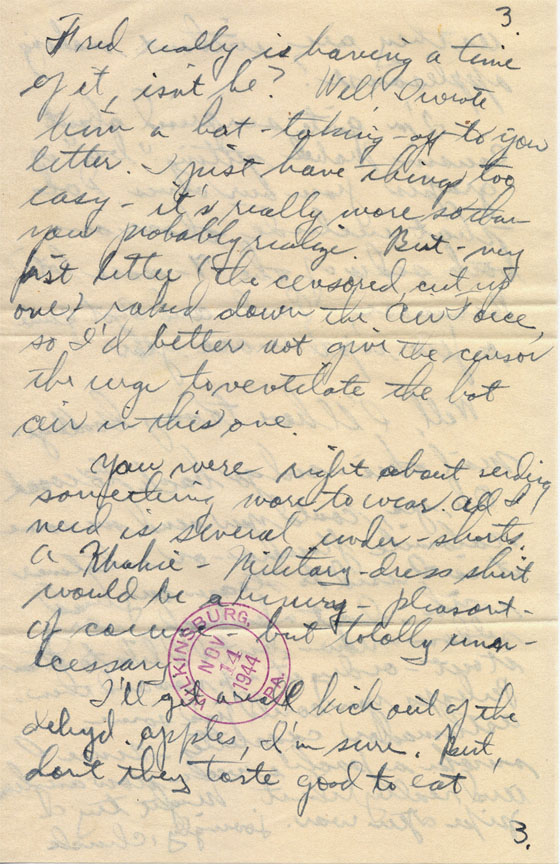 3.
Fred really is having a time
of it, isn't he? Well I wrote
him a hat-taking-off to you
letter. I just have things too
easy - it's really more so than
you probably realize. But - my
first letter (the censored, cut up
one) raked down the Air Force,
so I'd better not give the censor
the urge to ventilate the hot
air in this one.
You were right about sending
something more to wear. All I
need is several under-shorts.
A Khakie - Military-dress shirt
would be a luxury - pleasant -
of course - but totally unn-
ecessary.
WILKINSBURG, PA.
NOV 14 1944
I'll get a real kick out of the
dehyd. apples, I'm sure. But,
don't they taste good to eat
3.